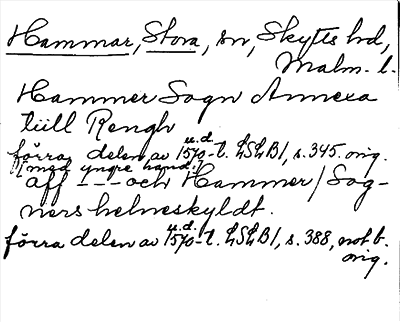 Hammar, Stora, sn, Skytts hd,
Malm. l.
Hammer Sogn Annexa
tiill Rengh
förra delen av 1570-t. LSLB1, s. 345. orig.
u.d.
[med yngre hand:]
aff - - - och Hammer / Sog-
ners helneskyldt.
u.d.
förra delen av 1570-t. LSLB1, s. 388, not b.
orig.